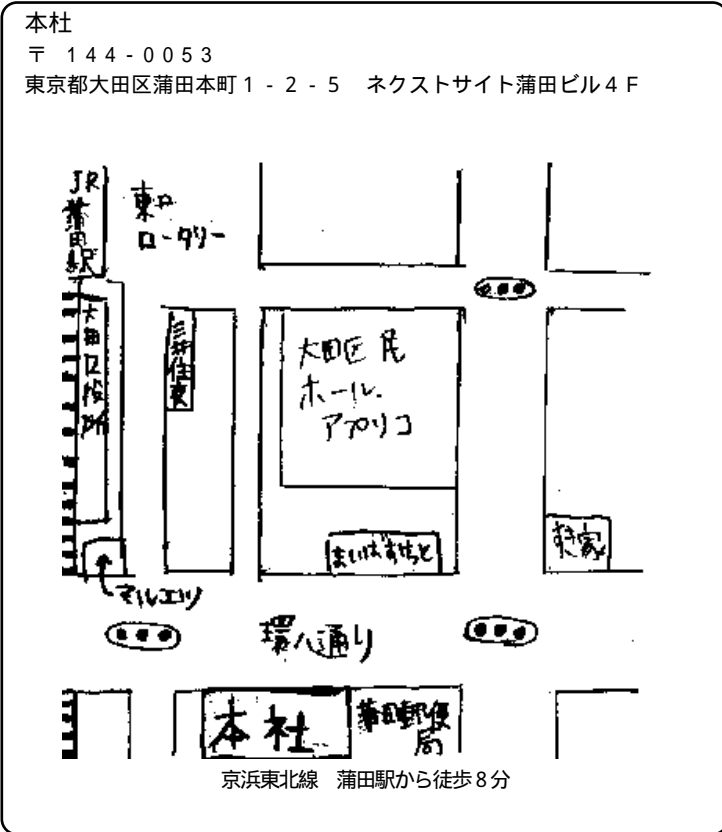 本社
〒 144-0053
東京都大田区蒲田本町1-2-5　ネクストサイト蒲田ビル4F
JR
蒲田駅
東口
ロータリー
大田区役所
三井住友
大田区民
ホール.
アプリコ
まいばすけっと
すき家
マルエツ
環八通り
本社
蒲田郵便
局
京浜東北線　蒲田駅から徒歩8分